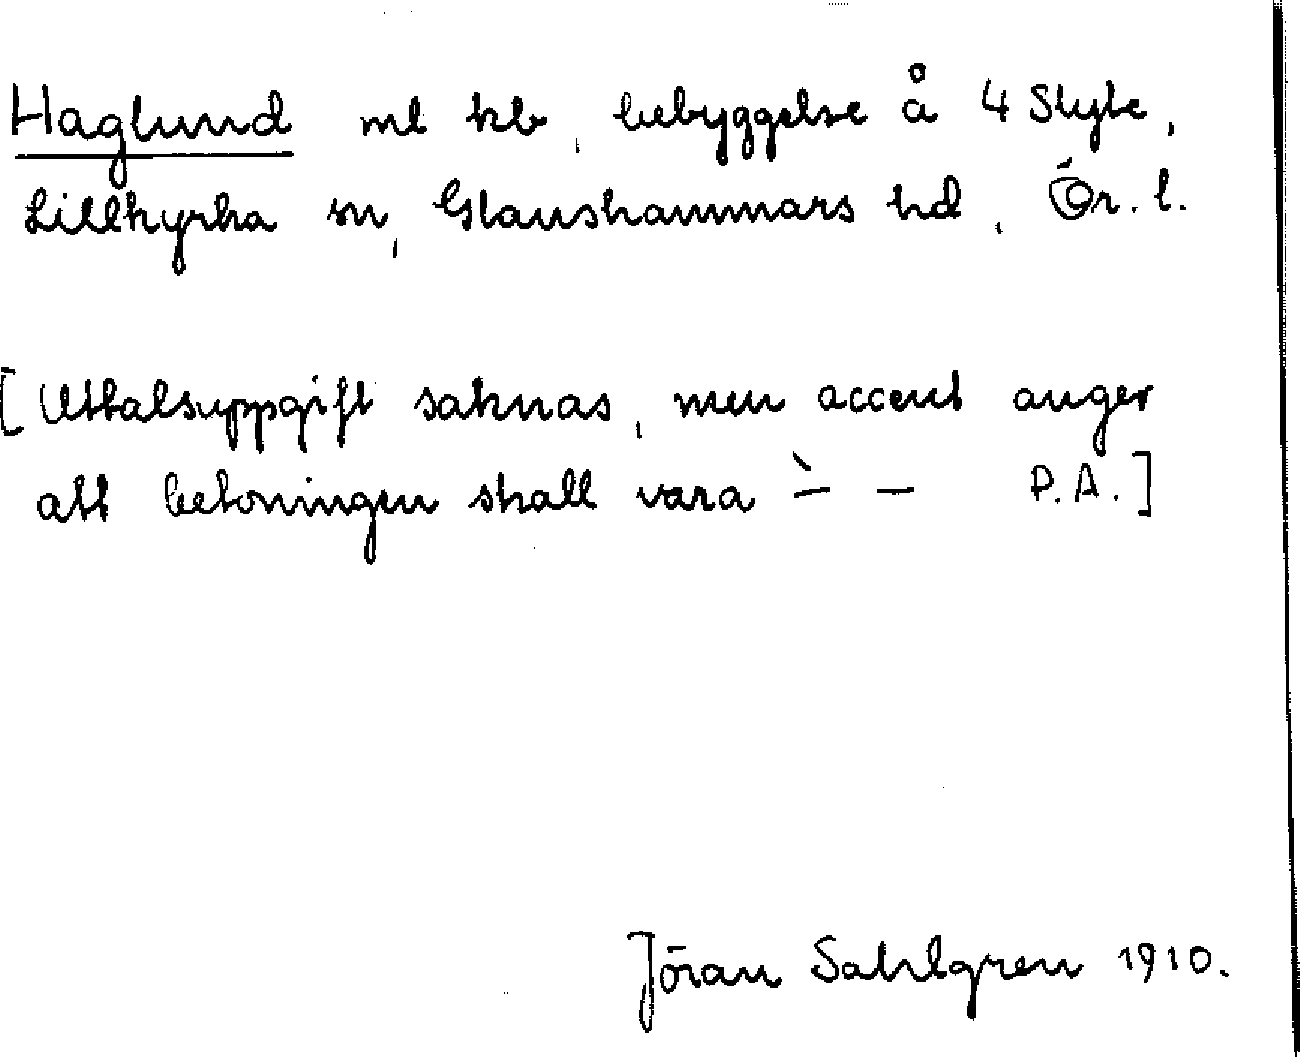 Haglund ml kb, bebyggelse å 4 Slyte,
Lillkyrka sn, Glanshammars hd, Ör. l.
[Uttalsuppgift saknas, men accent anger
att betoningen skall vara – ̀ – P.A.]
Jöran Sahlgren 1910.